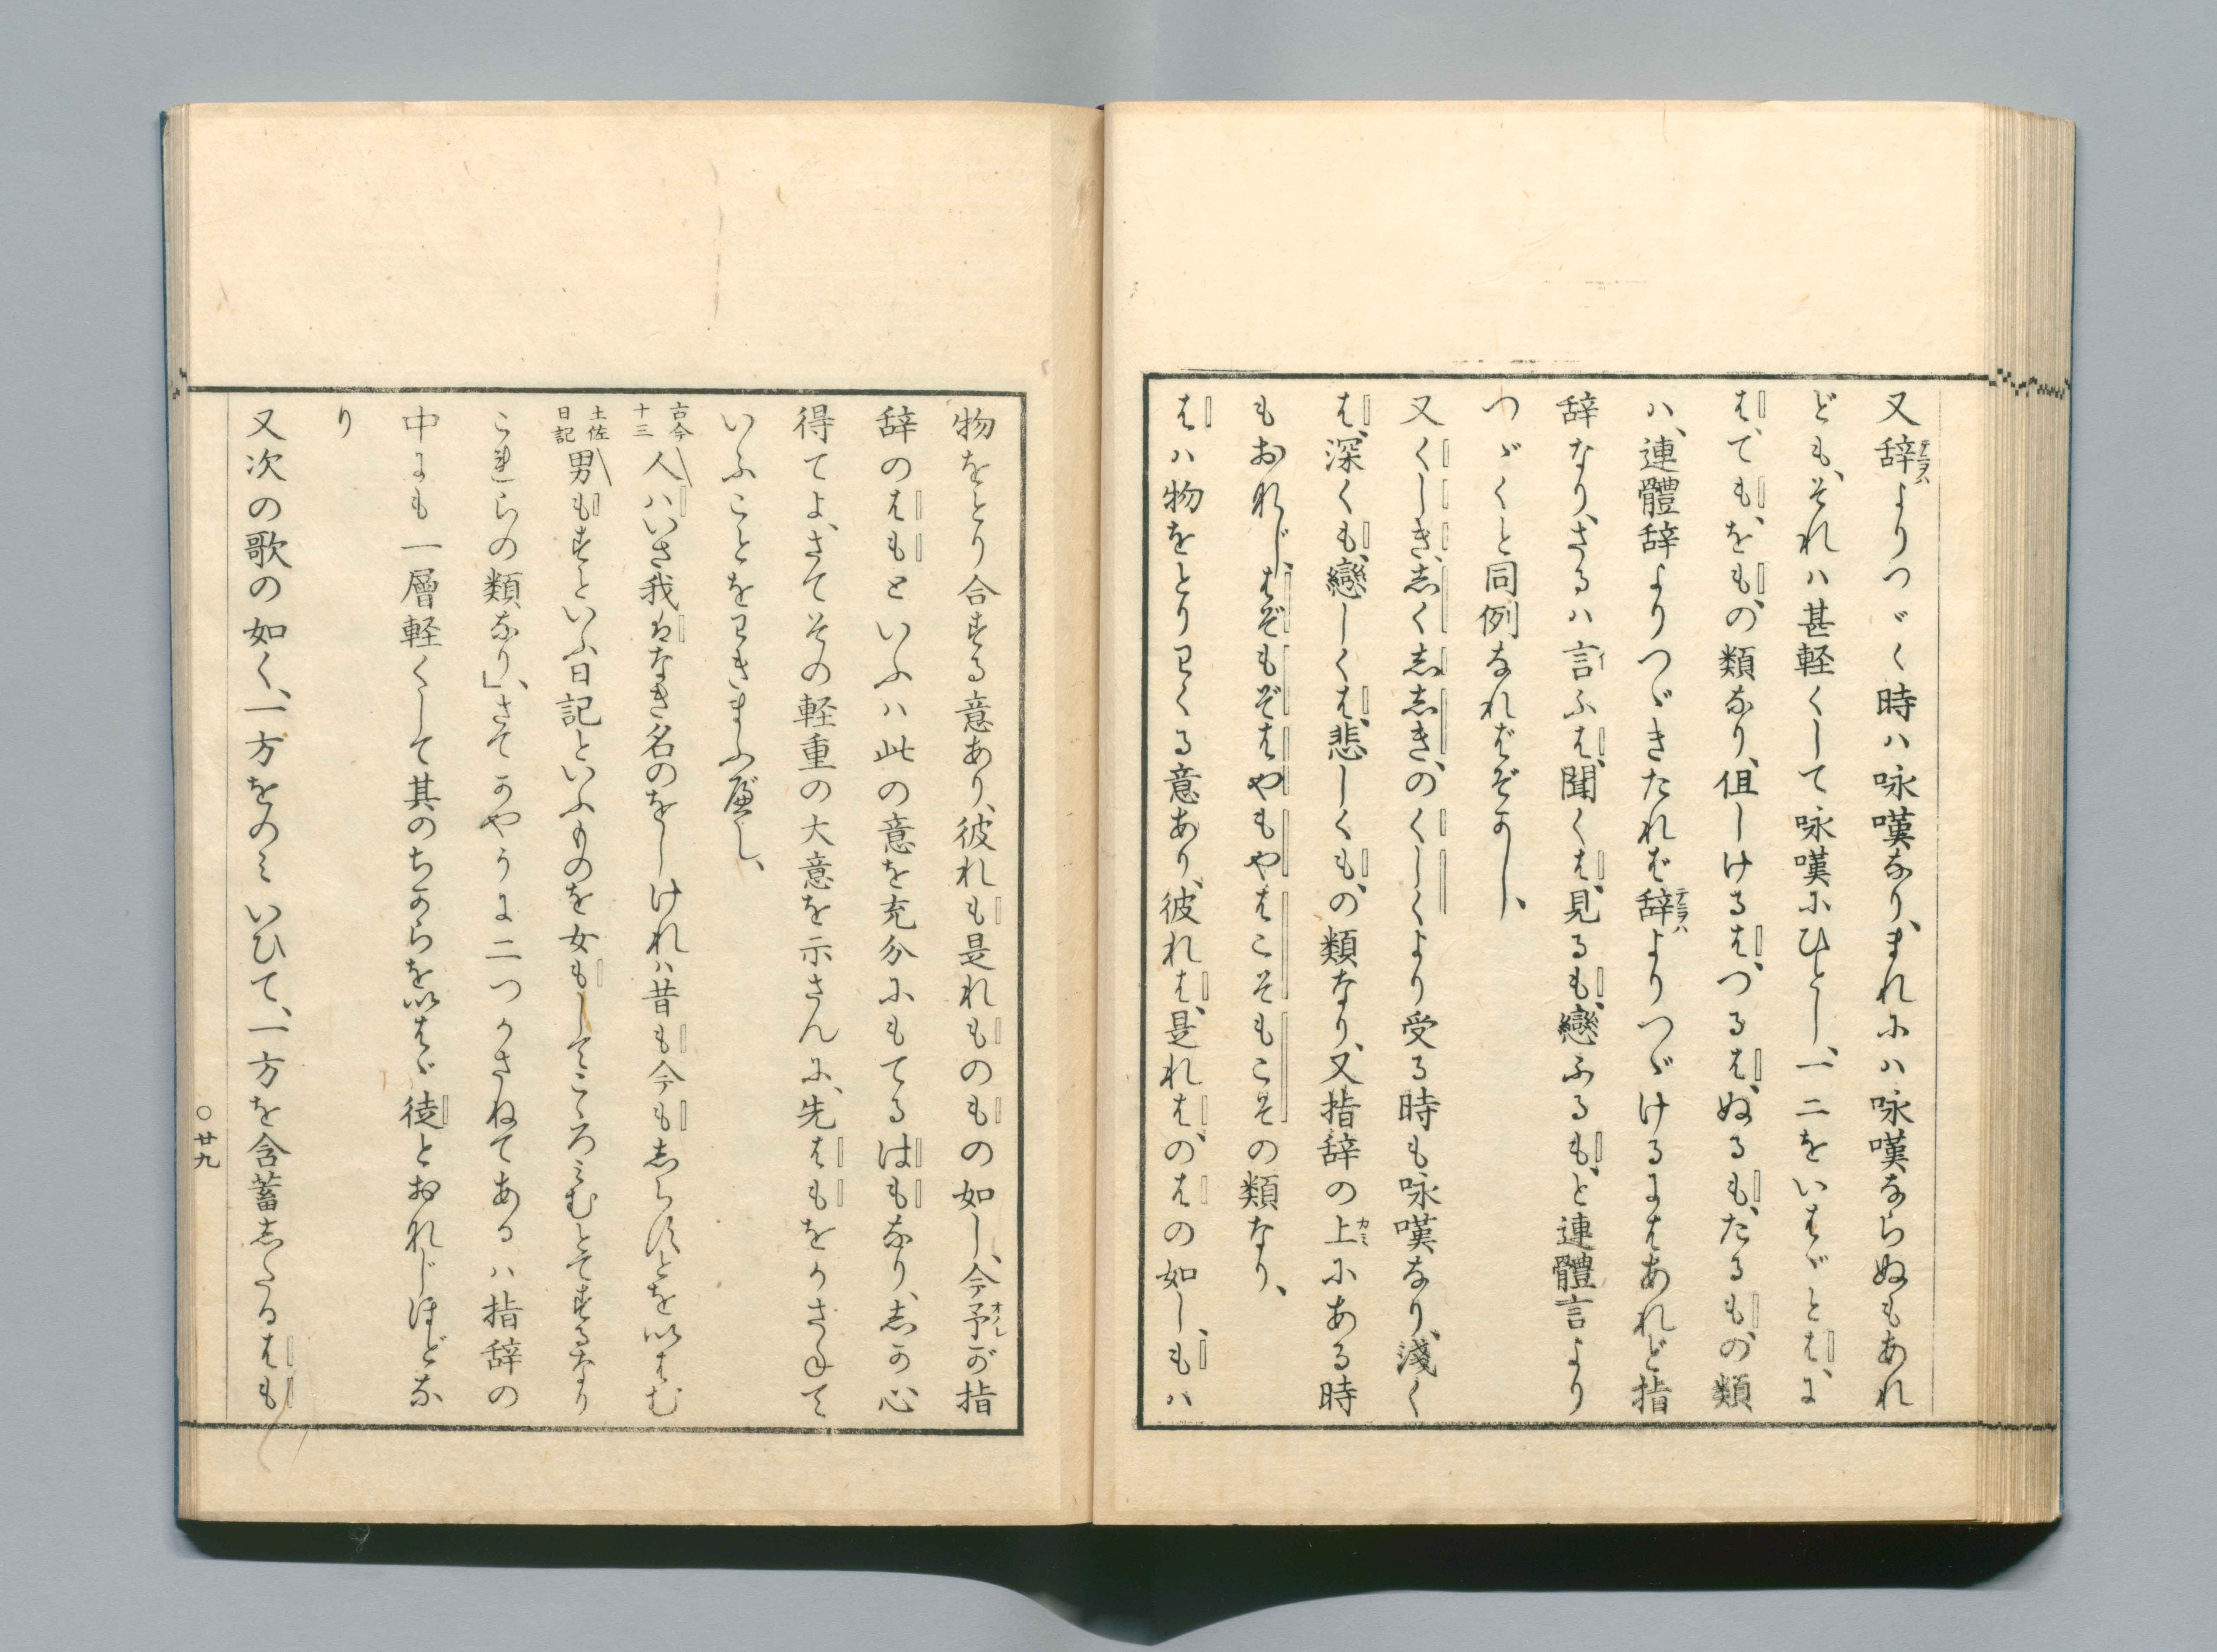 又辞テニヲハよりつゞく時ハ咏嘆なり、まれにハ咏嘆ならぬもあれ
ども、それハ甚軽くして咏嘆にひとし、一二をいはゞとは、に
は、ても、をも、の類なり、但しけるは、つるは、ぬるも、たるも、の類
ハ、連體辞よりつゞきたれば辞テニヲハよりつゞけるにはあれど指
辞なり、さるハ言イふは、聞くは、見るも、戀ふるも、と連體言より
つゞくと同例なればぞかし、
又くしき、志く志志き、のくしくより受る時も咏嘆なり、淺く
は、深くも、戀しくは、悲しくも、の類なり、又指辞の上カミにある時
もおれじ、はぞもぞはやもやはこそもこその類なり、
はハ物をとりわくる意あり、彼れは、是れはの、はの如し、もハ
物をとり合する意あり、彼れも是れものものの如し、今予オノレが指
辞のはもといふハ此の意を充分にもてるはもなり、志か心
得てよ、さてその軽重の大意を示さんに、先はもをかさねて
いふことをわきまふ儘し、
古今十三 人ハいさ我はなき名のをしけれハ昔も今も志らずとを以はむ
土佐日記 男もすといふ日記といふものを女もしてこゝろミむとてするなり
これらの類なり」、さてかやうに二つかさねてあるハ指辞の
中にも一層軽くして其のちからを以はゞ徒とおれじほどな
り
又次の歌の如く、一方をのミいひて、一方を含蓄志たるはも
○廿九